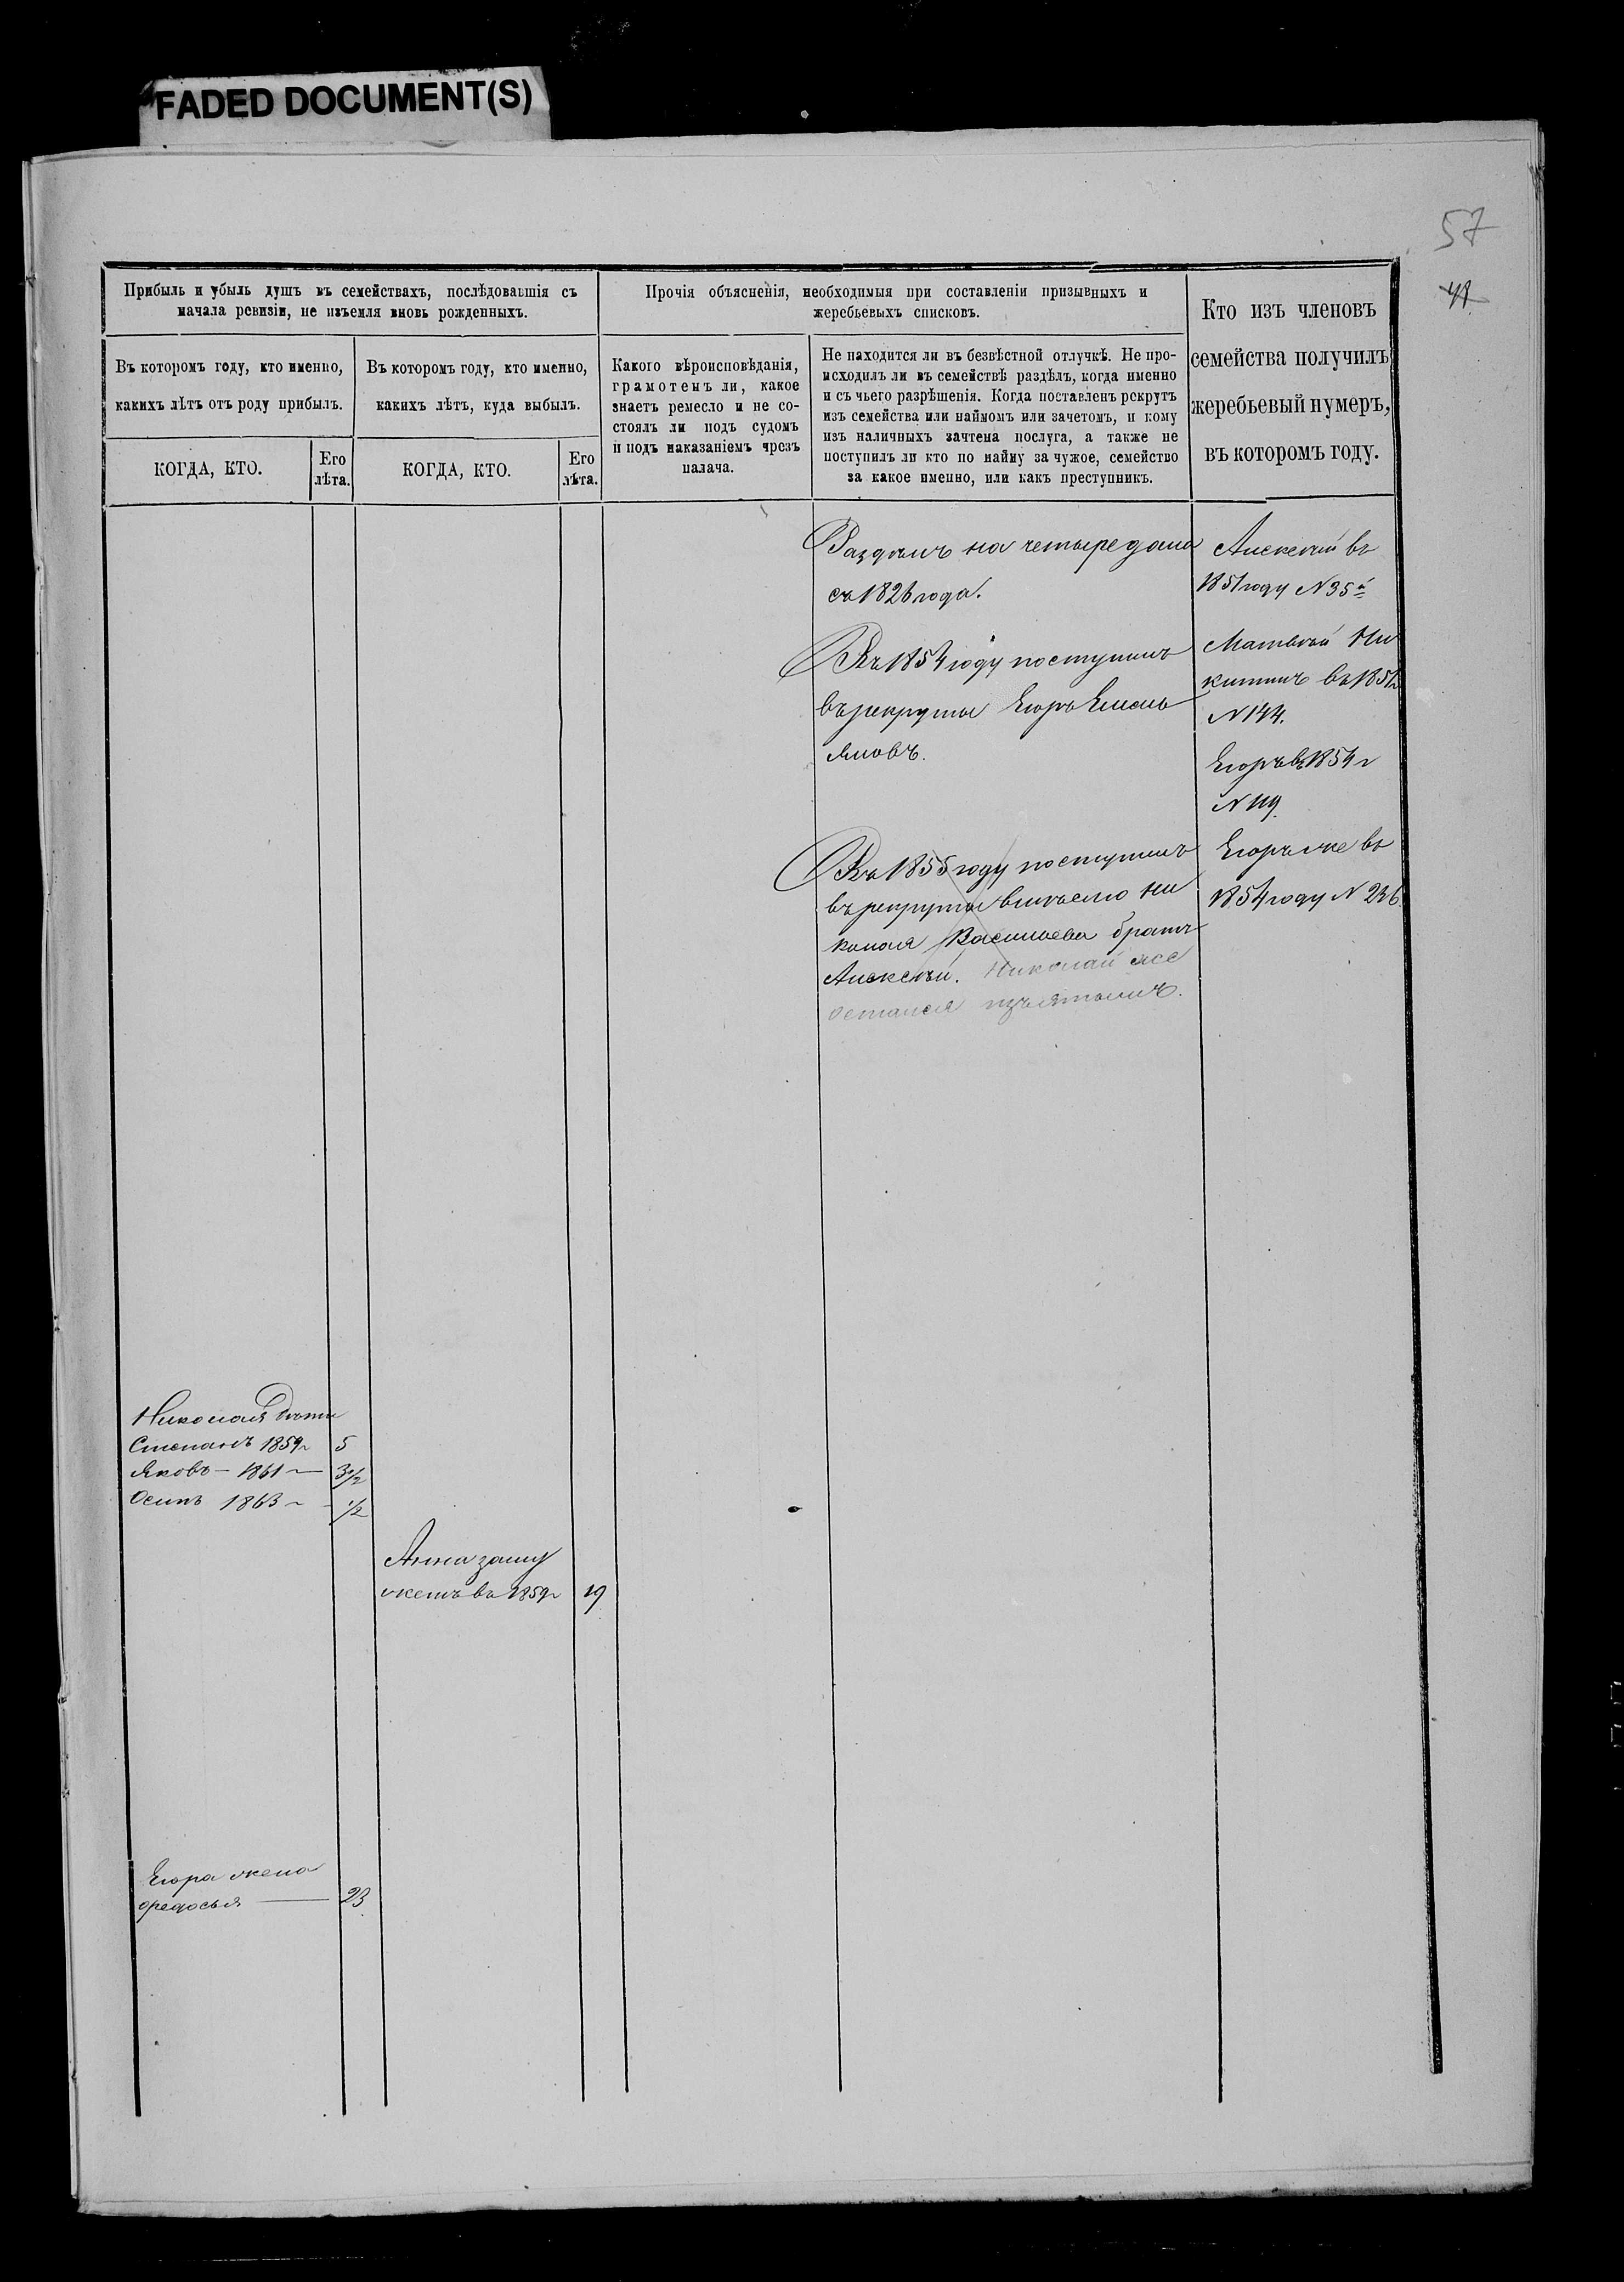 FADED DOCUMENT(S)
57
Прибыль и убыль душъ въ семействахъ, послѣдовавшія съ
начала ревизіи, не изъемля вновь рожденныхъ.
Прочія объясненія, необходимыя при составленіи призывныхъ и
жеребьевыхъ списковъ.
Кто изъ членовъ
семейства получилъ
жеребьевый нумеръ,
въ которомъ году.
Въ которомъ году, кто именно,
какихъ лѣтъ отъ роду прибылъ.
Въ которомъ году, кто именно,
какихъ лѣтъ, куда выбылъ.
Какого вѣроисповѣданія,
грамотенъ ли, какое
знаетъ ремесло и не со-
стоялъ ли подъ судомъ
и подъ наказаніемъ чрезъ
палача.
Не находится ли въ безвѣстной отлучкѣ. Не про-
исходилъ ли въ семействѣ раздѣлъ, когда именно
и съ чьего разрѣшенія. Когда поставленъ рекрутъ
изъ семейства или наймомъ или зачетомъ, и кому
изъ наличныхъ зачтена послуга, а также не
поступилъ ли кто по найму за чужое, семейство
за какое именно, или какъ преступникъ.
КОГДА, КТО.
Его
лѣта.
КОГДА, КТО.
Его
лѣта.
Раздѣлъ на четыре дома
съ 1826 года.
Въ 1854 году поступилъ
въ рекруты Егоръ Емель
яновъ.
Въ 1855 году поступилъ
въ рекруты вмѣсто Ни
колая Васильева братъ
Алексѣй. Николай же
остался изъятымъ.
Алексѣй въ
1851 году N 35й
Матвѣй Ни
китинъ въ 1851г
N 144.
Егоръ въ 1854 г
N 119.
Егоръ же въ
1854 году N 236.
Николая дѣти
Степанъ 1859г 5
Яковъ — 1861 — 3 1/2
Осипъ 1863 г - 1/2
Анна заму
жемъ въ 1859г 19
Егора жена
Ѳедосья — 23.